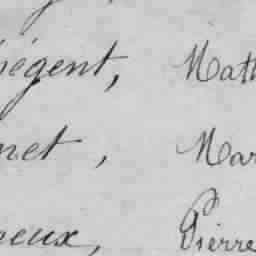 égent, Math
net, Mar
eux, Pierre